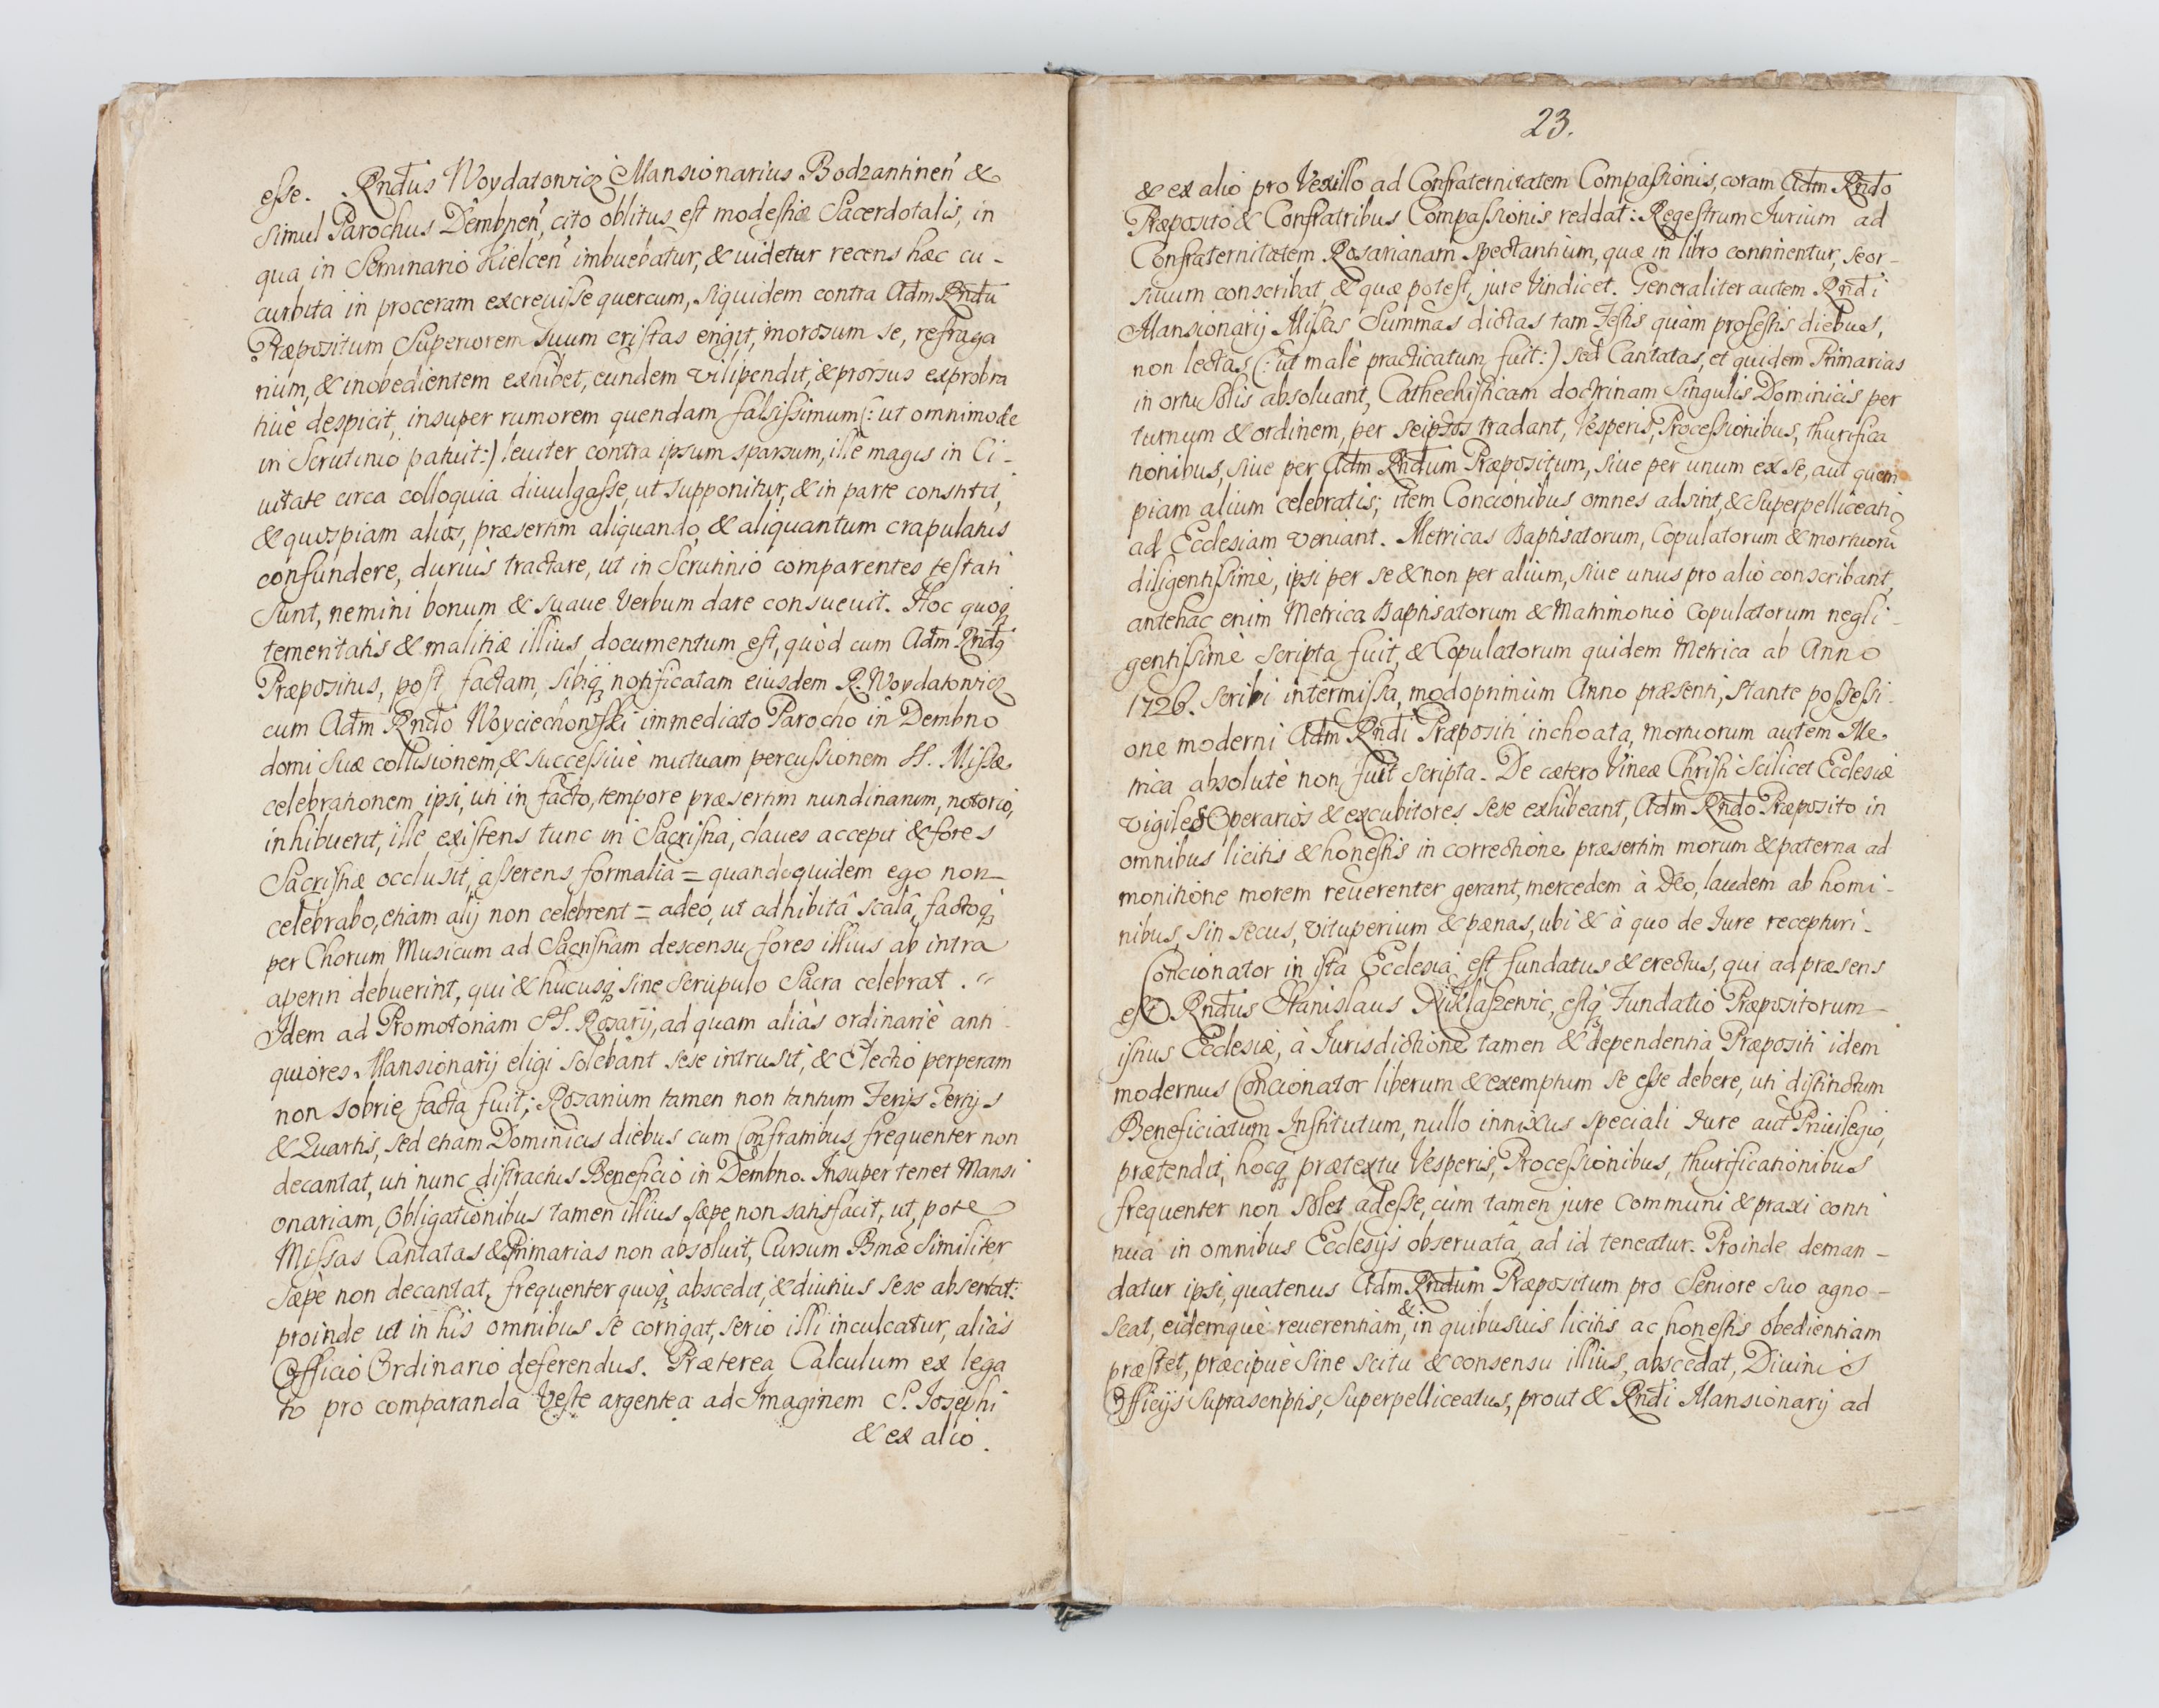 esse. Rndus Woydatowicz Mansionarius Bodzantinen̄ &
simul Parochus Dembnen̄, cito oblitus est modestiæ Sacerdotalis, in
qua in Seminario Kielcen̄ imbuebatur, & uidetur recens hæc cu-
curbita in proceram excreuisse quercum, siquidem contra Adm Rndū
Præpositum Superiorem suum cristas erigit, morosum se, refraga
rium, & inobedientem exhibet, eundem vilipendit, & prorsus exprobra
tiuè despicit, insuper rumorem quendam falsissimum (: ut omnimode
in Scrutinio patuit:) leuiter contra ipsum sparsum, ille magis in Ci-
uitate circa colloquia diuulgasse, ut supponitur, & in parte constitit,
& quospiam alios, præsertim aliquando, & aliquantum crapulatus
confundere, durius tractare, ut in Scrutinio comparentes testati
sunt, nemini bonum & suaue verbum dare consueuit. Hoc quoq
temeritatis & malitiæ illius documentum est, quòd cum Adm Rndg
Præpositus, post factam, sibiq notificatam eiusdem R. Woydatowicz
cum Adm Rndo Woyciechowski immediato Parocho in Dembno
domi suæ collisionem, & successiuè mutuam percussionem SS. Missæ
celebrationem ipsi, uti in facto, tempore præsertim nundinarum, notorio,
inhibuerit, ille existens tunc in Sacristia, claues accepit & fores
Sacristiæ occlusit, asserens formalia = quandoquidem ego non
celebrabo, etiam alij non celebrent = adeò, ut adhibitâ scalâ, factoq
per Chorum Musicum ad Sacristiam descensu fores illius ab intra
aperiri debuerint, qui & hucusq sine scrupulo Sacra celebrat.
Idem ad Promotoriam SS. Rosarij, ad quam aliàs ordinariè anti
quiores Mansionarij eligi solebant sese intrusit, & Electio perperam
non sobriè facta fuit; Rosarium tamen non tantum Ferijs Tertijs
& Quartis, sed etiam Dominicis diebus cum Confratribus frequenter non
decantat, uti nunc distractus Beneficio in Dembno. Insuper tenet Mansi
onariam, Obligationibus tamen illius sæpe non satisfacit, ut, pote
Missas Cantatas & Primarias non absoluit, Cursum Bmæ similiter
sæpè non decantat, frequenter quoq abscedit, & diutius sese absentat:
proinde ut in his omnibus se corrigat, serio illi inculcatur, aliàs
Officio Ordinario deferendus. Præterea Calculum ex lega
to pro comparanda Veste argentea ad Imaginem S. Josephi
& ex alio.
23.
& ex alio pro Vexillo ad Confraternitatem Compassionis, coram Adm Rndo
Præposito & Confratribus Compassionis reddat: Regestrum Jurium ad
Confraternitatem Rosarianam spectantium, quæ in libro continentur, seor-
siuum conscribat, & quæ potest, jure vindicet. Generaliter autem Rndi
Mansionarij Missas Summas dictas tam Festis quàm profestis diebus,
non lectas, (: ut malè practicatum fuit:) sed Cantatas, et quidem Primarias
in ortu Solis absoluant, Cathechisticam doctrinam singulis Dominicis per
turnum & ordinem, per seipsos tradant, Vesperis, Processionibus, thurifica
tionibus, siue per Adm Rndum Præpositum, siue per unum ex se, aut quem
piam alium celebratis; item Concionibus omnes adsint, & Superpelliceati
ad Ecclesiam veniant. Metricas Baptisatorum, Copulatorum & mortuorū
diligentissimè, ipsi per se & non per alium, siue unus pro alio conscribant,
antehac enim Metrica Baptisatorum & Matrimonio Copulatorum negli-
gentissimè scripta fuit, & Copulatorum quidem Metrica ab Anno
1726. scribi intermissa, modo primùm Anno præsenti, stante possessi-
one moderni Adm Rndi Præpositi inchoata, mortuorum autem Me
trica absolutè non fuit scripta. De cætero Vineæ Christi scilicet Ecclesiæ
vigiles Operarios & excubitores sese exhibeant, Adm Rndo Præposito in
omnibus licitis & honestis in correctione præsertim morum & paterna ad
monitione morem reuerenter gerant, mercedem à Deo, laudem ab homi-
nibus, sin secus, vituperium & pænas, ubi & à quo de Jure recepturi.
Concionator in ista Ecclesia est fundatus & erectus, qui ad præsens
est Rndus Stanislaus Niklaszewic, estq Fundatio Præpositorum
istius Ecclesiæ, à Jurisdictione tamen & dependentia Præpositi idem
modernus Concionator liberum & exemptum se esse debere, uti distinctum
Beneficiatum Institutum, nullo innixus speciali Jure aut Priuilegio,
prætendit, hocq prætextu Vesperis, Processionibus, thurificationibus
frequenter non solet adesse, cùm tamen jure communi & praxi conti
nua in omnibus Ecclesijs obseruatâ, ad id teneatur. Proinde deman-
datur ipsi, quatenus Adm Rndum Præpositum pro Seniore suo agno-
scat, eidemque reuerentiam, & in quibusuis licitis ac honestis obedientiam
præstet, præcipuè sine scitu & consensu illius, abscedat, Diuinis
Officijs suprascriptis, Superpelliceatus, prout & Rndi Mansionarij ad